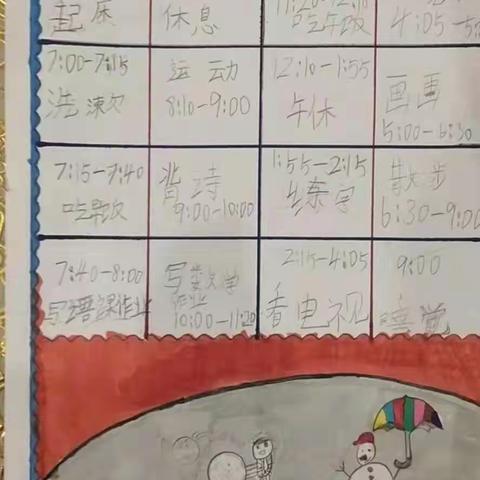 起床
休息
11:20-12:10
吃午饭
4:05-5:
7:00-7:15
洗漱
运动
8:10-9:00
12:10-1:55
午休
画画
5:00-6:30
7:15-7:40
吃早饭
背诗
9:00-10:00
1:55-2:15
练字
散步
6:30-9:00
7:40-8:00
写语课作业
写数学
作业
10:00-11:20
2:15-4:05
看电视
9:00
睡觉